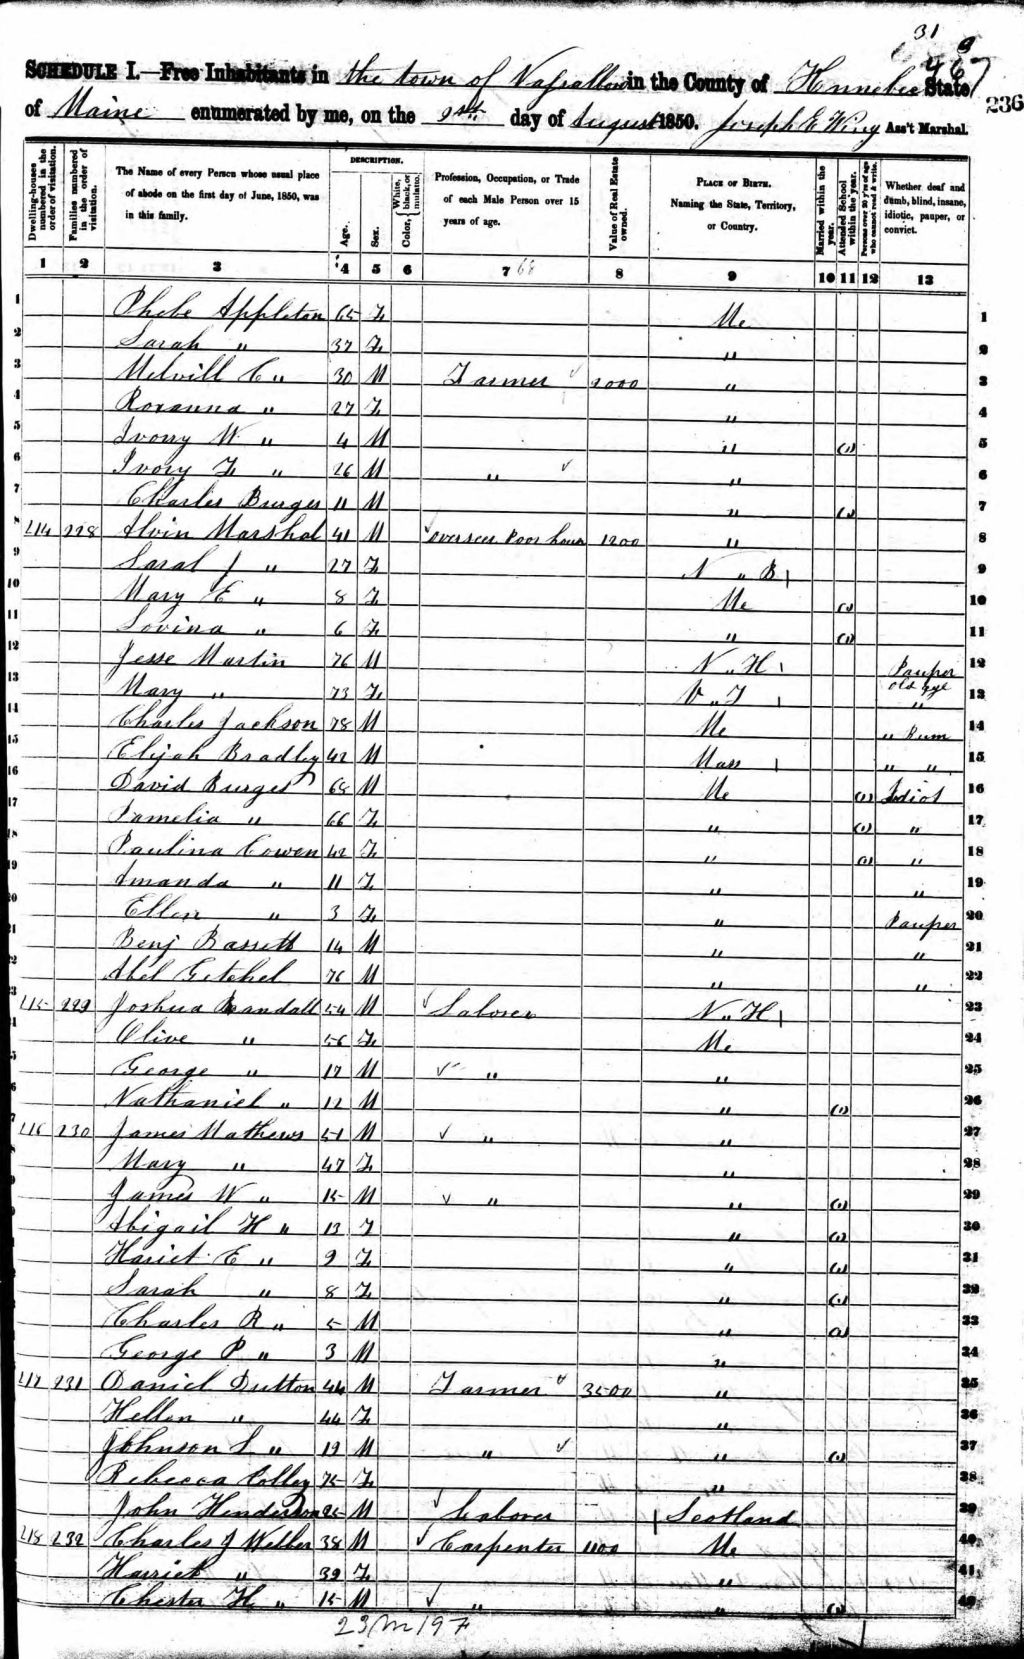 31
SCHEDULE I.—Free Inhabitants in the town of Vassalboro in the County of Kennebec State
236
of Maine enumerated by me, on the 9th day of August 1850. Joseph E Wing Ass't Marshal.
Dwelling-houses numbered in the order of visitation. Families numbered in the order of visitation. The Name of every Person whose usual place of abode on the first day of June, 1850, was in this family. DESCRIPTION. Age. Sex. Color, White, black, or mulatto. Profession, Occupation, or Trade of each Male Person over 15 years of age. Value of Real Estate owned. PLACE OF BIRTH. Naming the State, Territory, or Country. Married within the year. Attended School within the year. Persons over 20 y'rs of age who cannot read & write. Whether deaf and dumb, blind, insane, idiotic, pauper, or convict.
1 2 3 4 5 6 7 68 8 9 10 11 12 13
1 Phebe Appleton 65 F Me 1
2 Sarah " 37 F " 2
3 Melvill C " 30 M Farmer 2000 " 3
4 Roxanna " 27 F " 4
5 Ivory W " 4 M " (1) 5
6 Ivory F " 26 M " " 6
7 Charles Burges 11 M " (1) 7
8 214 228 Alvin Marshal 41 M overseer Poor house 1200 " 8
9 Sarah J " 27 F N " B 9
10 Mary E " 8 F Me (1) 10
11 Lovina " 6 F " (1) 11
12 Jesse Martin 76 M N " H Pauper 12
13 Mary " 73 F V " T old age " 13
14 Charles Jackson 78 M Me " Rum 14
15 Elijah Bradley 42 M Mass " " 15
16 David Burges 68 M Me (1) Idiot 16
17 Pamelia " 66 F " (1) " 17
18 Paulina Cowen 42 F " (1) " 18
19 Amanda " 11 F " " 19
20 Ellen " 3 F " Pauper 20
21 Benj Bassett 14 M " " 21
22 Abel Getchel 76 M " " 22
23 215 229 Joshua Randall 54 M Laborer N " H 23
24 Olive " 56 F Me 24
25 George " 17 M " " 25
26 Nathaniel " 12 M " (1) 26
27 216 230 James Mathews 51 M " " 27
28 Mary " 47 F " 28
29 James W " 15 M " " (1) 29
30 Abigail H " 13 F " (1) 30
31 Hariet E " 9 F " (1) 31
32 Sarah " 8 F " (1) 32
33 Charles R " 5 M " (1) 33
34 George P " 3 M " 34
35 217 231 Daniel Dutton 44 M Farmer 3500 " 35
36 Hellen " 44 F " 36
37 Johnson L " 19 M " " (1) 37
38 Rebecca Colley 75 F " 38
39 John Henderson 25 M Laborer Scotland 39
40 218 232 Charles J Weller 38 M Carpenter 1100 Me 40
Harriet " 39 F " 41
Chester H " 15 M " " (1) 42
23 m 19 F